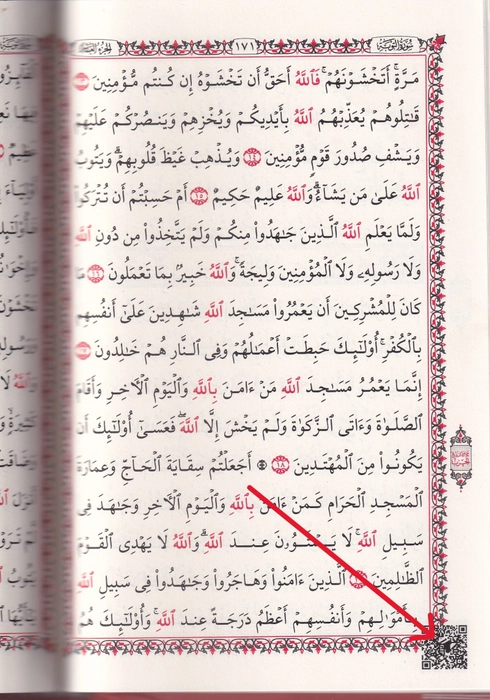 سورة التوبة
١٧١
الجزء العاشر
مَرَّةٍ ۚ أَتَخْشَوْنَهُمْ ۚ فَٱللَّهُ أَحَقُّ أَن تَخْشَوْهُ إِن كُنتُم مُّؤْمِنِينَ
قَـٰتِلُوهُمْ يُعَذِّبْهُمُ ٱللَّهُ بِأَيْدِيكُمْ وَيُخْزِهِمْ وَيَنصُرْكُمْ عَلَيْهِمْ
وَيَشْفِ صُدُورَ قَوْمٍ مُّؤْمِنِينَ ١٤ وَيُذْهِبْ غَيْظَ قُلُوبِهِمْ ۗ وَيَتُوبُ
ٱللَّهُ عَلَىٰ مَن يَشَآءُ ۗ وَٱللَّهُ عَلِيمٌ حَكِيمٌ ١٥ أَمْ حَسِبْتُمْ أَن تُتْرَكُوا۟
وَلَمَّا يَعْلَمِ ٱللَّهُ ٱلَّذِينَ جَـٰهَدُوا۟ مِنكُمْ وَلَمْ يَتَّخِذُوا۟ مِن دُونِ ٱللَّهِ
وَلَا رَسُولِهِۦ وَلَا ٱلْمُؤْمِنِينَ وَلِيجَةً ۚ وَٱللَّهُ خَبِيرٌۢ بِمَا تَعْمَلُونَ ١٦ مَا
كَانَ لِلْمُشْرِكِينَ أَن يَعْمُرُوا۟ مَسَـٰجِدَ ٱللَّهِ شَـٰهِدِينَ عَلَىٰٓ أَنفُسِهِم
بِٱلْكُفْرِ ۚ أُو۟لَـٰٓئِكَ حَبِطَتْ أَعْمَـٰلُهُمْ وَفِى ٱلنَّارِ هُمْ خَـٰلِدُونَ
إِنَّمَا يَعْمُرُ مَسَـٰجِدَ ٱللَّهِ مَنْ ءَامَنَ بِٱللَّهِ وَٱلْيَوْمِ ٱلْـَٔاخِرِ وَأَقَامَ
ٱلصَّلَوٰةَ وَءَاتَى ٱلزَّكَوٰةَ وَلَمْ يَخْشَ إِلَّا ٱللَّهَ ۖ فَعَسَىٰٓ أُو۟لَـٰٓئِكَ أَن
يَكُونُوا۟ مِنَ ٱلْمُهْتَدِينَ ١٨ ۞ أَجَعَلْتُمْ سِقَايَةَ ٱلْحَآجِّ وَعِمَارَةَ
ٱلْمَسْجِدِ ٱلْحَرَامِ كَمَنْ ءَامَنَ بِٱللَّهِ وَٱلْيَوْمِ ٱلْـَٔاخِرِ وَجَـٰهَدَ فِى
سَبِيلِ ٱللَّهِ ۚ لَا يَسْتَوُۥنَ عِندَ ٱللَّهِ ۗ وَٱللَّهُ لَا يَهْدِى ٱلْقَوْمَ
ٱلظَّـٰلِمِينَ ٱلَّذِينَ ءَامَنُوا۟ وَهَاجَرُوا۟ وَجَـٰهَدُوا۟ فِى سَبِيلِ ٱللَّهِ
بِأَمْوَٰلِهِمْ وَأَنفُسِهِمْ أَعْظَمُ دَرَجَةً عِندَ ٱللَّهِ ۚ وَأُو۟لَـٰٓئِكَ هُمُ